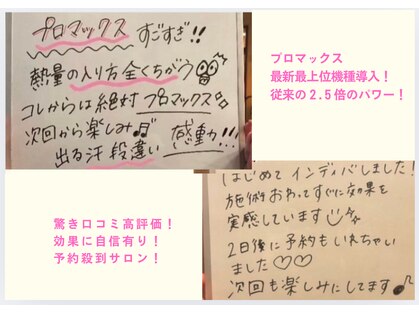 プロマックス すごすぎ!!
熱量の入り方全くちがう
コレからは絶対プロマックス
次回から楽しみ♬ 感動!!!
出る汗段違い
プロマックス
最新最上位機種導入！
従来の2.5倍のパワー！
驚き口コミ高評価！
効果に自信有り！
予約殺到サロン！
はじめてインディバしました！
施術おわってすぐに効果を
実感しています
2日後に予約もいれちゃい
ました♡♡
次回も楽しみにしてます♪